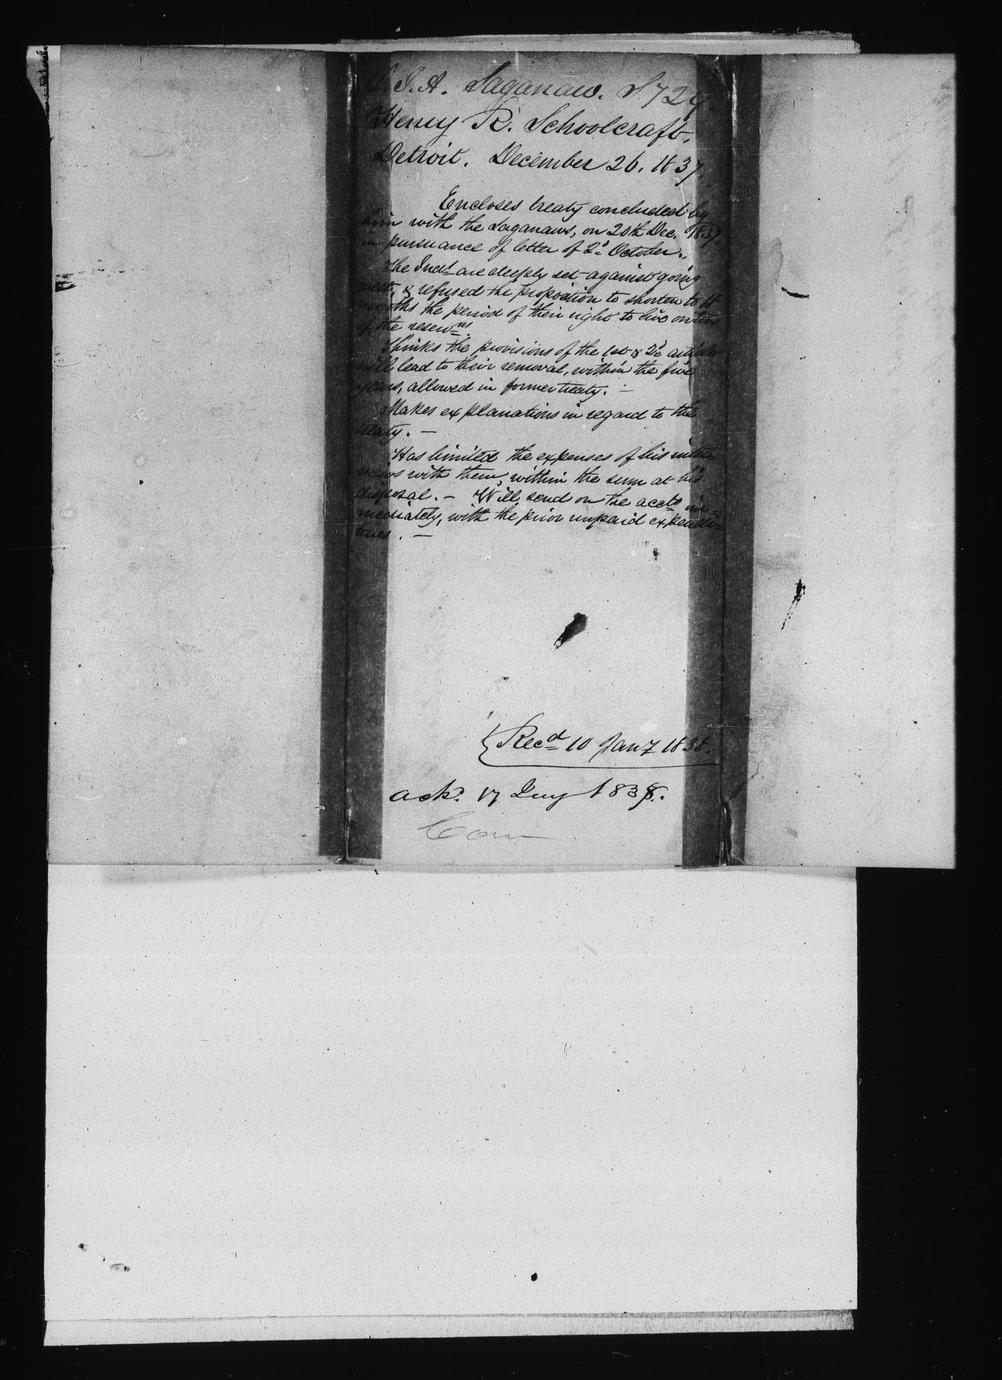 S.I.A. Saganaw. S729.
Henry R. Schoolcraft,
Detroit. December 26. 1837.
Encloses treaty concluded by
him with the Saganaws, on 20th Dec. 1837,
in pursuance of letter of 2d October.
The Inds are deeply set against going
west, & refused the proposition to shorten to 18
months the period of their right to live on two
of the reserns.
Thinks the provisions of the 1st & 2d articles
will lead to their removal, within the five
years, allowed in former treaty. —
Makes explanations in regard to the
treaty. —
Has limited the expenses of his inter
views with them, within the sum at his
disposal. — Will send on the accts im-
mediately, with the prior unpaid expendi-
tures. —
Recd 10 Jany 1838.
ackd. 17 Jany 1838.
Com